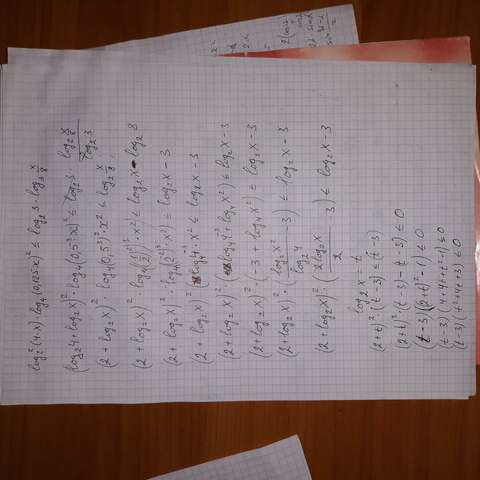 log₂²(4·x)·log₄(0,125·x²) ≤ log₂3·log₃ x/8
(log₂4+log₂x)²·log₄(0,5³·x²) ≤ log₂3 · (log₂ x/8)/(log₂3)
(2+log₂x)²·log₄(0,5³)·x² ≤ log₂ x/8
(2+log₂x)²·log₄((1/2)³·x²) ≤ log₂x - log₂8
(2+log₂x)²·log₄(2⁻³·x²) ≤ log₂x-3
(2+log₂x)²·log₄4⁻³·x² ≤ log₂x-3
(2+log₂x)²·(log₄4⁻³+log₄x²) ≤ log₂x-3
(2+log₂x)²·(-3+log₄x²) ≤ log₂x-3
(2+log₂x)²·((log₂x²)/(log₂4) -3) ≤ log₂x-3
(2+log₂x)²·((2log₂x)/2 -3) ≤ log₂x-3
log₂x=t
(2+t)²·(t-3)≤(t-3)
(2+t)²(t-3)-(t-3)≤0
(t-3)((2+t)²-1)≤0
(t-3)(4+4t+t²-1)≤0
(t-3)(t²+4t+3)≤0